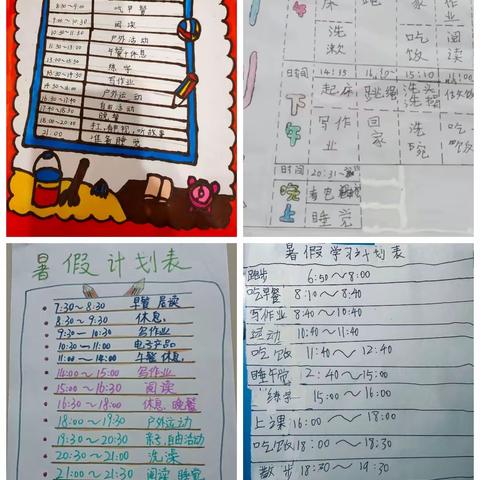 吃早餐
9:00~10:30 阅读
10:30~11:30 户外活动
午餐+休息
练字
写作业
户外运动
自由活动
晚餐
18:00~20:00 打、看电视、听故事
21:00 准备睡觉
床 跑 家 作业
洗漱 吃饭 阅读
时间 14:35 15:10
下午
起床 跳绳 洗头洗澡
写作业 回家 洗碗 吃饭
时间 20:31
晚上
睡觉
暑假计划表
7:30~8:30 早餐 晨读
8:30~9:30 休息
9:30~10:30 写作业
10:30~11:00 电子产品
11:00~14:00 午餐 休息
14:00~15:00 写作业
15:00~16:30 阅读
16:30~18:00 休息、晚餐
18:00~19:30 户外运动
19:30~20:30 亲子,自由活动
20:30~21:00 洗澡
21:00~21:30 阅读 睡觉
暑假学习计划表
跑步 6:50~8:00
吃早餐 8:10~8:40
写作业 8:40~10:40
运动 10:40~11:40
吃饭 11:40~12:40
睡午觉 2:40~15:00
练字 15:00~16:00
上课 16:00~18:00
吃饭 18:00~18:30
散步 18:30~19:30